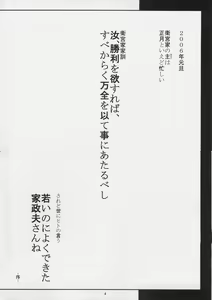 ２００６年元旦
衛宮家の主は
正月といえど忙しい
衛宮家家訓
汝、勝利を欲すれば、
すべからく万全を以て事にあたるべし
されど世にヒトの言う
若いのによくできた
家政夫さんね